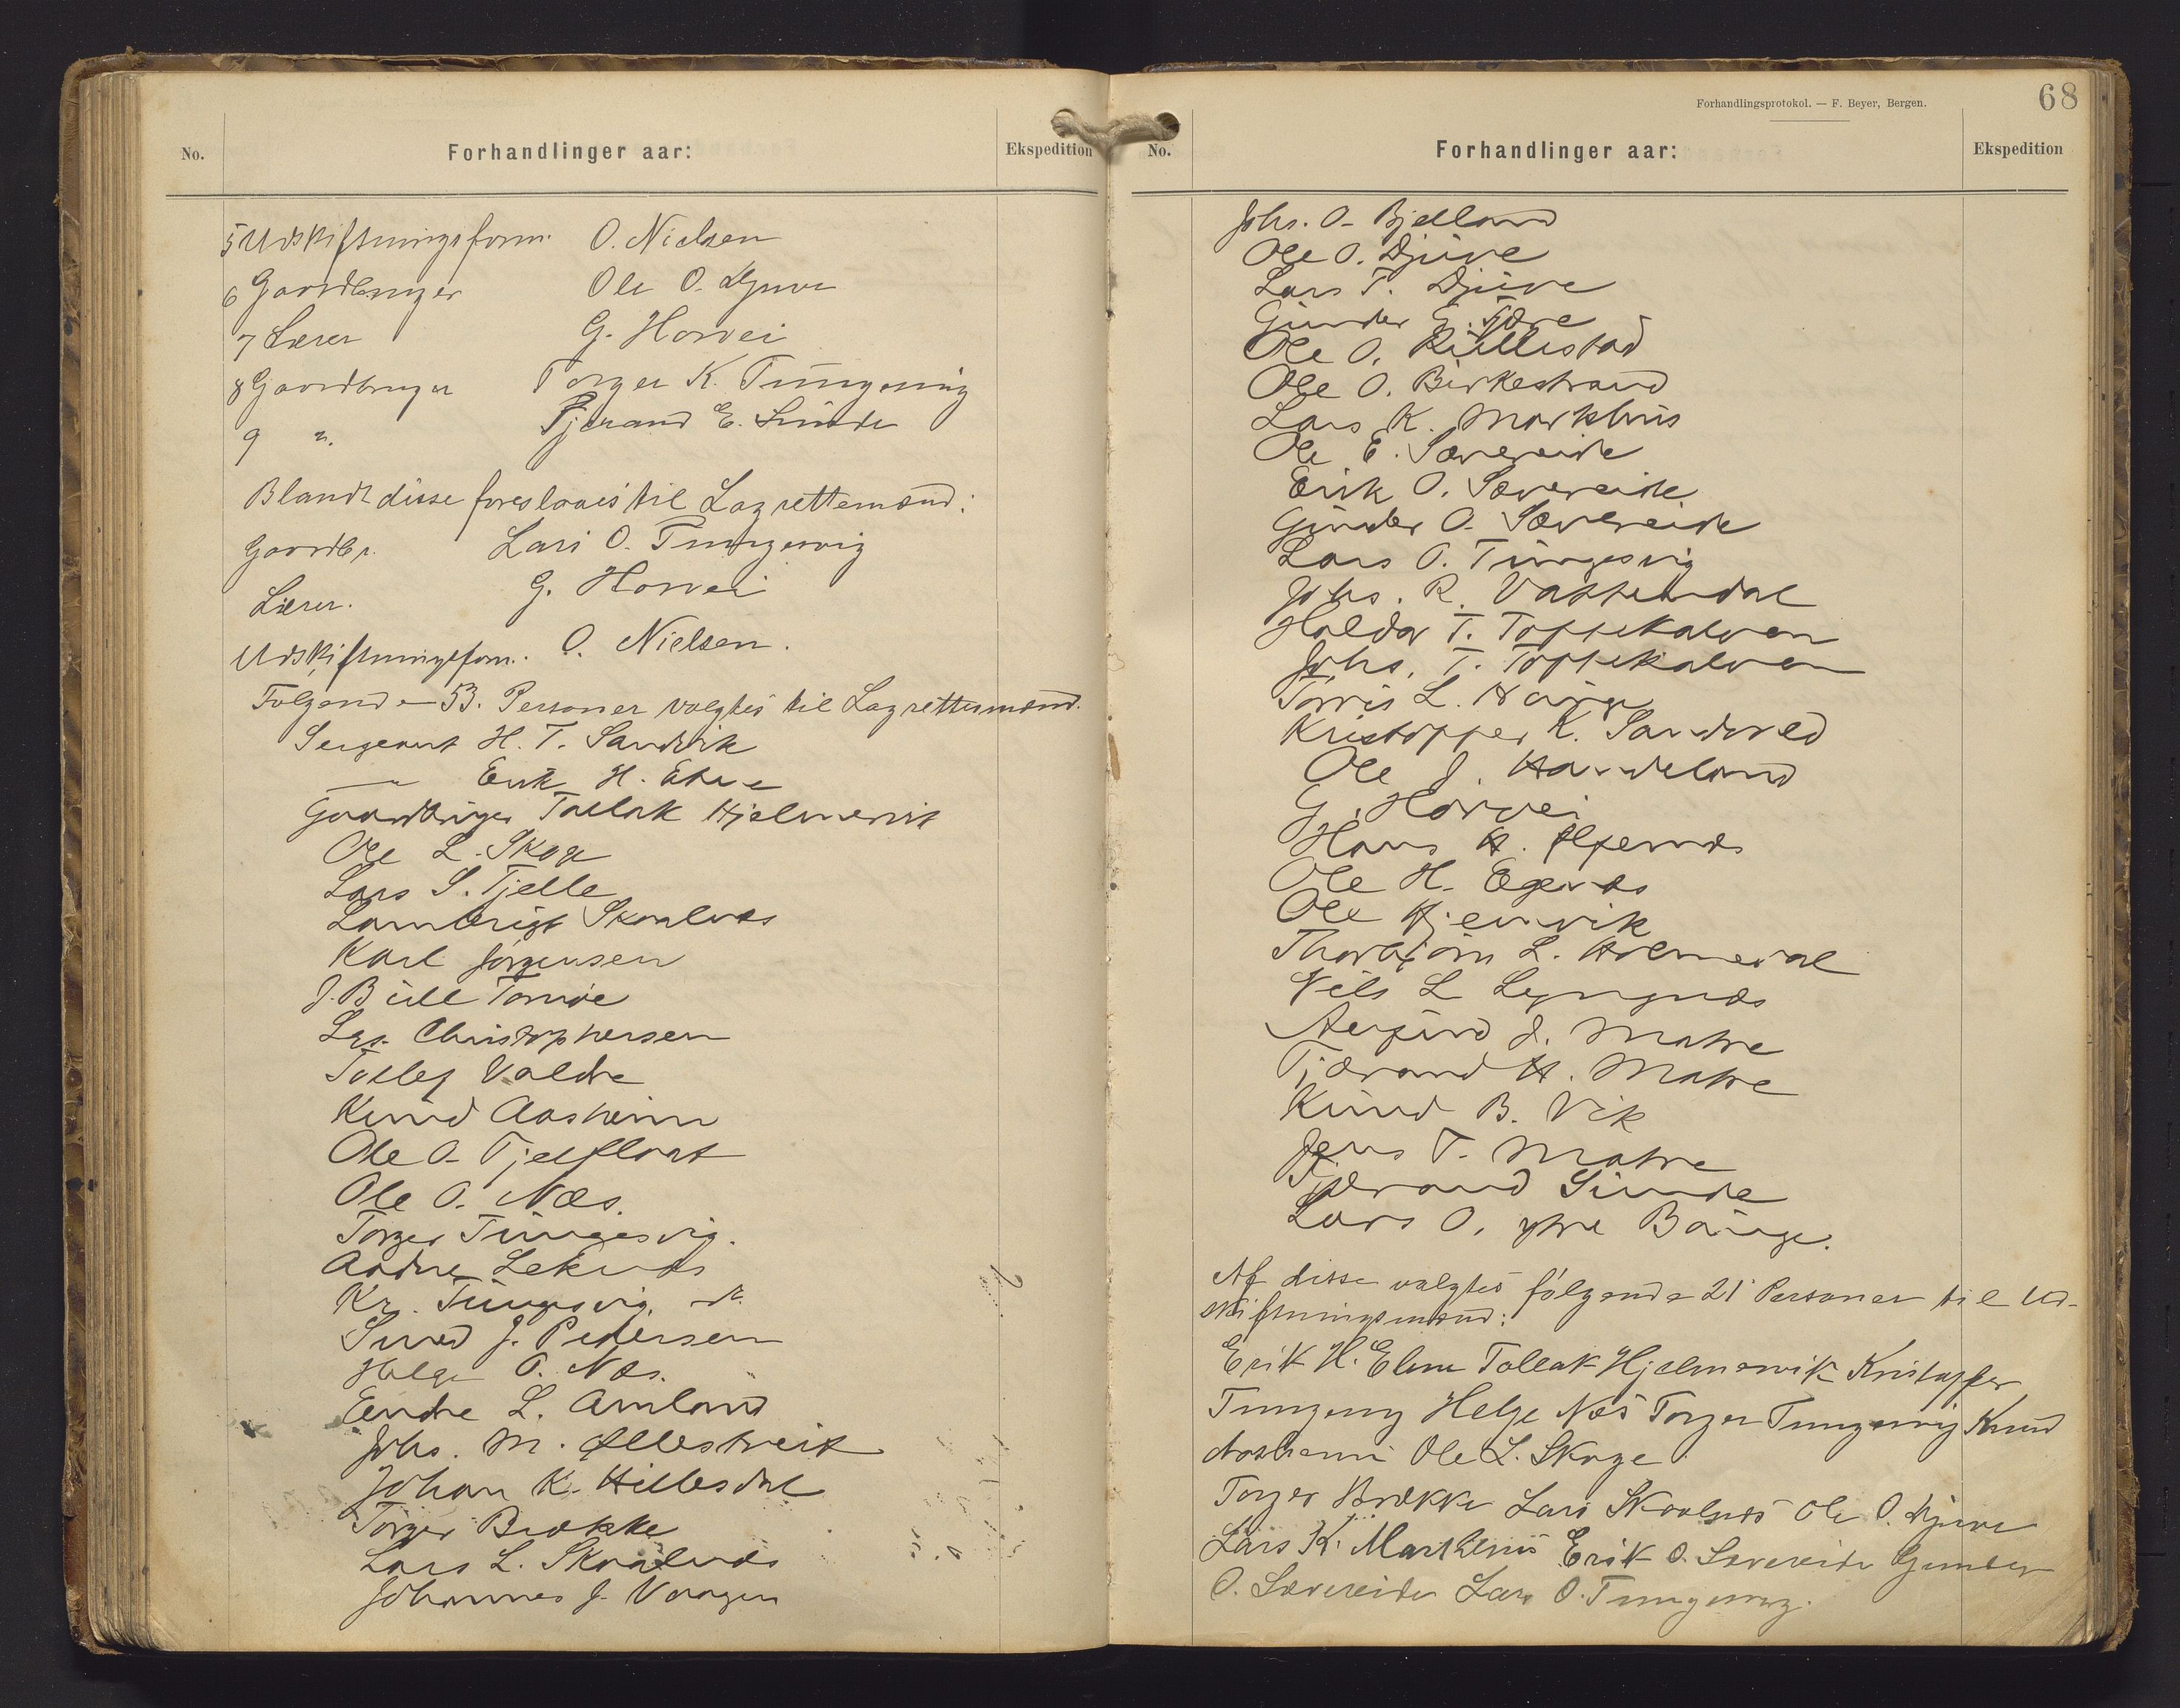 No. Forhandlinger aar: Ekspedition
5 Udskiftningsform. O. Nielsen
6 Gaardbruger Ole O. Djuve
7 Lærer G. Horvei
8 Gaardbruger Torger K. Tungesvig
9 " Tjerand E. Sunde
Blandt disse foreslaaes til Lagrettemænd:
Gaardbr. Lars O. Tungesvig
Lærer. G. Horvei
Udskiftningsform. O. Nielsen.
Følgende 53. Personer valgtes til Lagrettesmænd.
Sergeant H. T. Sandvik
— " Erik H. Ebne
Gaardbruger Tollak Hjelmervik
Ole L. Skoge
Lars S. Tjelle
Lambrigt Skaalnæs
Karl Jørgensen
J. Bull Tornøe
Lars Christophersen
Tollef Valdre
Knud Aasheim
Ole O. Tjelflaat
Ole O. Næs.
Torger Tungesvig.
Andre Leknæs
Kr. Tungesvig.
Sved J. Pedersen
Helge O. Næs.
Endre L. Amland
Johs. M. Øllestveit
Johan K. Hillesdal
Torger Brække
Lars L. Skaalnæs
Johannes J. Vaagen
Forhandlingsprotokol. — F. Beyer, Bergen.
68
No. Forhandlinger aar: Ekspedition
Johs. O. Bjelland
Ole O. Djuve
Lars T. Djuve
Gunder G. Fjære
Ole O. Rullestad
Ole O. Birkestrand
Lars K. Markhus
Ole E. Sævereide
Erik O. Sævereide
Gunder O. Sævereide
Lars O. Tungesvig
Johs. R. Vattendal
Haldor T. Toftekalven
Johs. T. Toftekalven
Torris L. Hauge
Kristoffer K. Sandved
Ole J. Handeland
G. Horvei
Hans H. Ølfernæs
Ole H. Egenæs
Ole Hjemvik
Thorbjørn L. Holmedal
Nils L Lyngnæs
Amfind J. Matre
Tjærand H. Matre
Knud B. Vik
Jens T. Matre
Tjærand Sunde
Lars O. ytre Bauge.
Af disse valgtes følgende 21 Personer til Ud-
skiftningsmænd:
Erik H. Ebne Tollak Hjelmervik Kristoffer
Tungesvig Helge Næs Torger Tungesvig Knud
Aasheim Ole L. Skoge
Torger Brække Lars Skaalnæs Ole O. Djuve
Lars K. Markhus Erik O. Sævereide Gunder
O. Sævereide Lars O. Tungesvig.